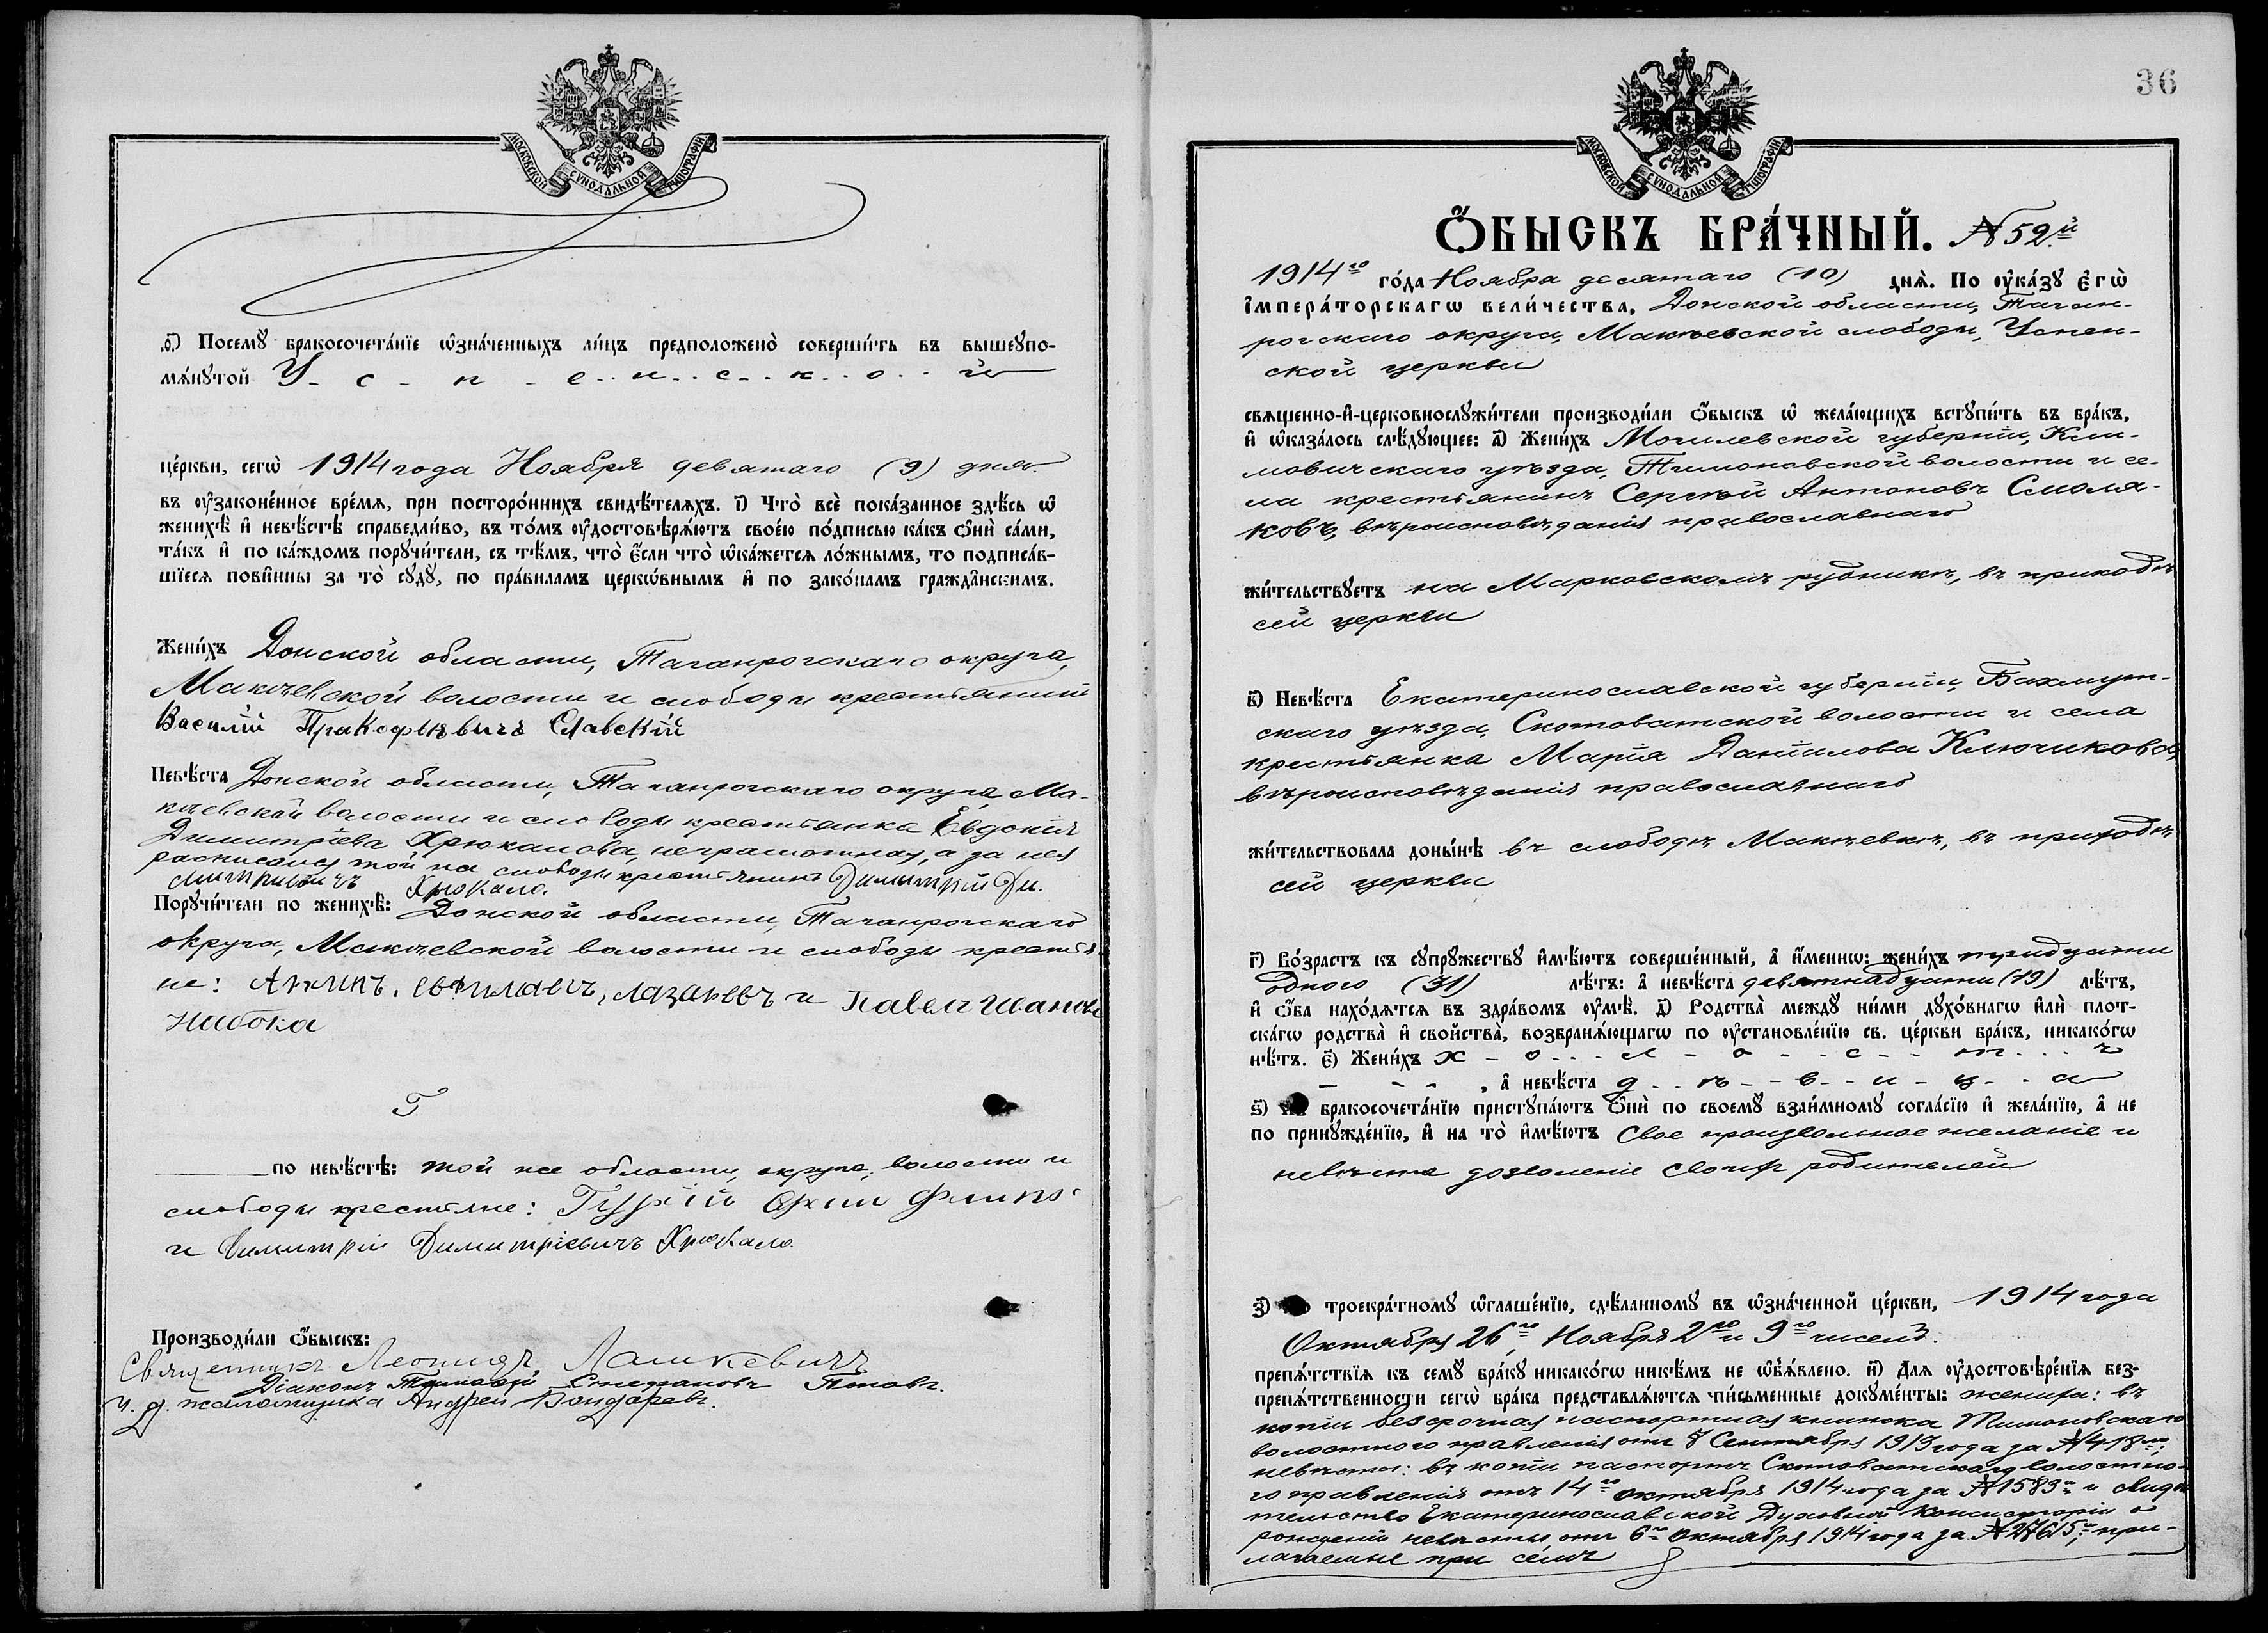 МОСКОВСКОЙ СѴНОДАЛЬНОЙ ТИПОГРАФІИ
ѳ҃) Посемꙋ бракосочета́нїе ѡ҆зна́ченныхъ ли́цъ предположено̀ соверши́ть въ вышеꙋпо-
мѧ́нꙋтой У - с - п - е - н - с - к - о - й
це́ркви, сегѡ̀ 1914 года Ноября девятаго (9) дня
въ ѹ҆законе́нное вре́мѧ, при посторо́ннихъ свидѣ́телѧхъ. і҃) Что̀ всѐ пока́занное здѣ́сь ѡ҆
женихѣ̀ и҆ невѣ́стѣ справедли́во, въ то́мъ ѹ҆достовѣрѧ́ютъ свое́ю по́дписью ка́къ ѻ҆нѝ са́ми,
та́къ и҆ по ка́ждомъ порꙋчи́тели, съ тѣ́мъ, что̀ є҆́сли что̀ ѡ҆ка́жетсѧ ло́жнымъ, то подписа́в-
шїесѧ пови́нны за то̀ сꙋдꙋ̀, по пра́виламъ церкѡ́внымъ и҆ по зако́намъ гражда̂нскимъ.
Жени́хъ Донской области, Таганрогскаго округа,
Макѣевской волости и слободы крестьянинъ
Василій Пракофьевичъ Славскій
Невѣ́ста Донской области, Таганрогскаго округа, Ма-
кѣевской волости и слободы крестьянка Евдокія
Димитріева Хрюкалова, неграмотная, а за нея
расписался той же слободы крестьянинъ Димитрій Ди-
митріевичъ Хрюкало.
Порꙋчи́тели по женихѣ̀: Донской области, Таганрогскаго
округа, Макѣевской волости и слободы крестья-
не: Лазаревъ и Павелъ Ивановъ
Нибока
по невѣ́стѣ: той же области, округа, волости и
слободы крестьяне: Гурій
и Димитрій Димитріевичъ Хрюкало.
Производи́ли ѻ҆́быскъ:
Священникъ Леонидъ Лашкевичъ
Діаконъ Тимофей Стефановъ Поповъ.
И. д. псаломщика Андрей Бондаревъ.
36
МОСКОВСКОЙ СѴНОДАЛЬНОЙ ТИПОГРАФІИ
Ѻ҆́БЫСКЪ БРА́ЧНЫЙ. № 52й
1914го го́да Ноября десятаго (10) днѧ̀. По ѹ҆ка́зꙋ є҆гѡ̀
і҆мпера́торскагѡ вели́чества, Донской области, Таган-
рогскаго округа, Макѣевской слободы, Успен-
ской церкви
свѧщенно-и҆-церковнослꙋжи́тели производи́ли ѻ҆́быскъ ѡ҆ жела́ющихъ встꙋпи́ть въ бра́къ,
и҆ ѡ҆каза́лось слѣ́дꙋющее: а҃) Жени́хъ Могилевской губерніи, Кли-
мовичскаго уѣзда, Тимоновской волости и се-
ла крестьянинъ Сергѣй Антоновъ Смоля-
ковъ, вѣроисповѣданія православнаго
жи́тельствꙋетъ на Марковскомъ рудникѣ, въ приходѣ
сей церкви
в҃) Невѣ́ста Екатеринославской губерніи, Бахмут-
скаго уѣзда, Скотоватской волости и села
крестьянка Марія Даніилова Ключикова,
вѣроисповѣданія православнаго
жи́тельствовала доны́нѣ въ слободѣ Макѣевкѣ, въ приходѣ
сей церкви
г҃) Во́зрастъ къ сꙋпрꙋ́жествꙋ и҆мѣ́ютъ соверше́нный, а҆ и҆́меннѡ: жени́хъ тридцати
одного (31) лѣ́тъ: а҆ невѣ́ста девятнадцати (19) лѣ́тъ,
и҆ ѻ҆́ба нахо́дѧтсѧ въ здра́вомъ ѹ҆мѣ̀. д҃) Родства̀ междꙋ ни́ми дꙋхо́внагѡ и҆лѝ плот-
ска́гѡ родства̀ и҆ свойства̀, возбранѧ́ющагѡ по ѹ҆становле́нїю св. це́ркви бра́къ, никако́гѡ
нѣ́тъ. є҃) Жени́хъ х - о - л - о - с - т - ъ
, а҆ невѣ́ста д - ѣ - в - и - ц - а
ѕ҃) бракосочета́нїю пристꙋпа́ютъ ѻ҆нѝ по своемꙋ̀ взаи́мномꙋ согла́сїю и҆ жела́нїю, а҆ не
по принꙋжде́нїю, и҆ на то̀ и҆мѣ́ютъ свое произвольное желаніе и
невѣста дозволеніе своихъ родителей
з҃) троекра́тномꙋ ѡ҆глаше́нїю, сдѣ́ланномꙋ въ ѡ҆зна́ченной це́ркви, 1914 года
Октября 26го, Ноября 2го и 9го чиселъ.
препѧ́тствїѧ къ семꙋ̀ бра́кꙋ никако́гѡ никѣ́мъ не ѡ҆б̾ѧ́влено. и҃) Для ѹ҆достовѣре́нїѧ без-
препѧ́тственности сегѡ̀ бра́ка представлѧ́ютсѧ пи́сьменные докꙋме́нты: жениха: въ
копіи безсрочная паспортная книжка Тимоновскаго
волостного правленія отъ 8 Сентября 1913 года за № 418мъ;
невѣсты: въ копіи паспортъ Скотоватскаго волостно-
го правленія отъ 14го октября 1914 года за № 1583мъ и свидѣ-
тельство Екатеринославской Духовной Консисторіи о
рожденіи невѣсты отъ 6го Октября 1914 года за № 27615мъ, при-
лагаемые при семъ